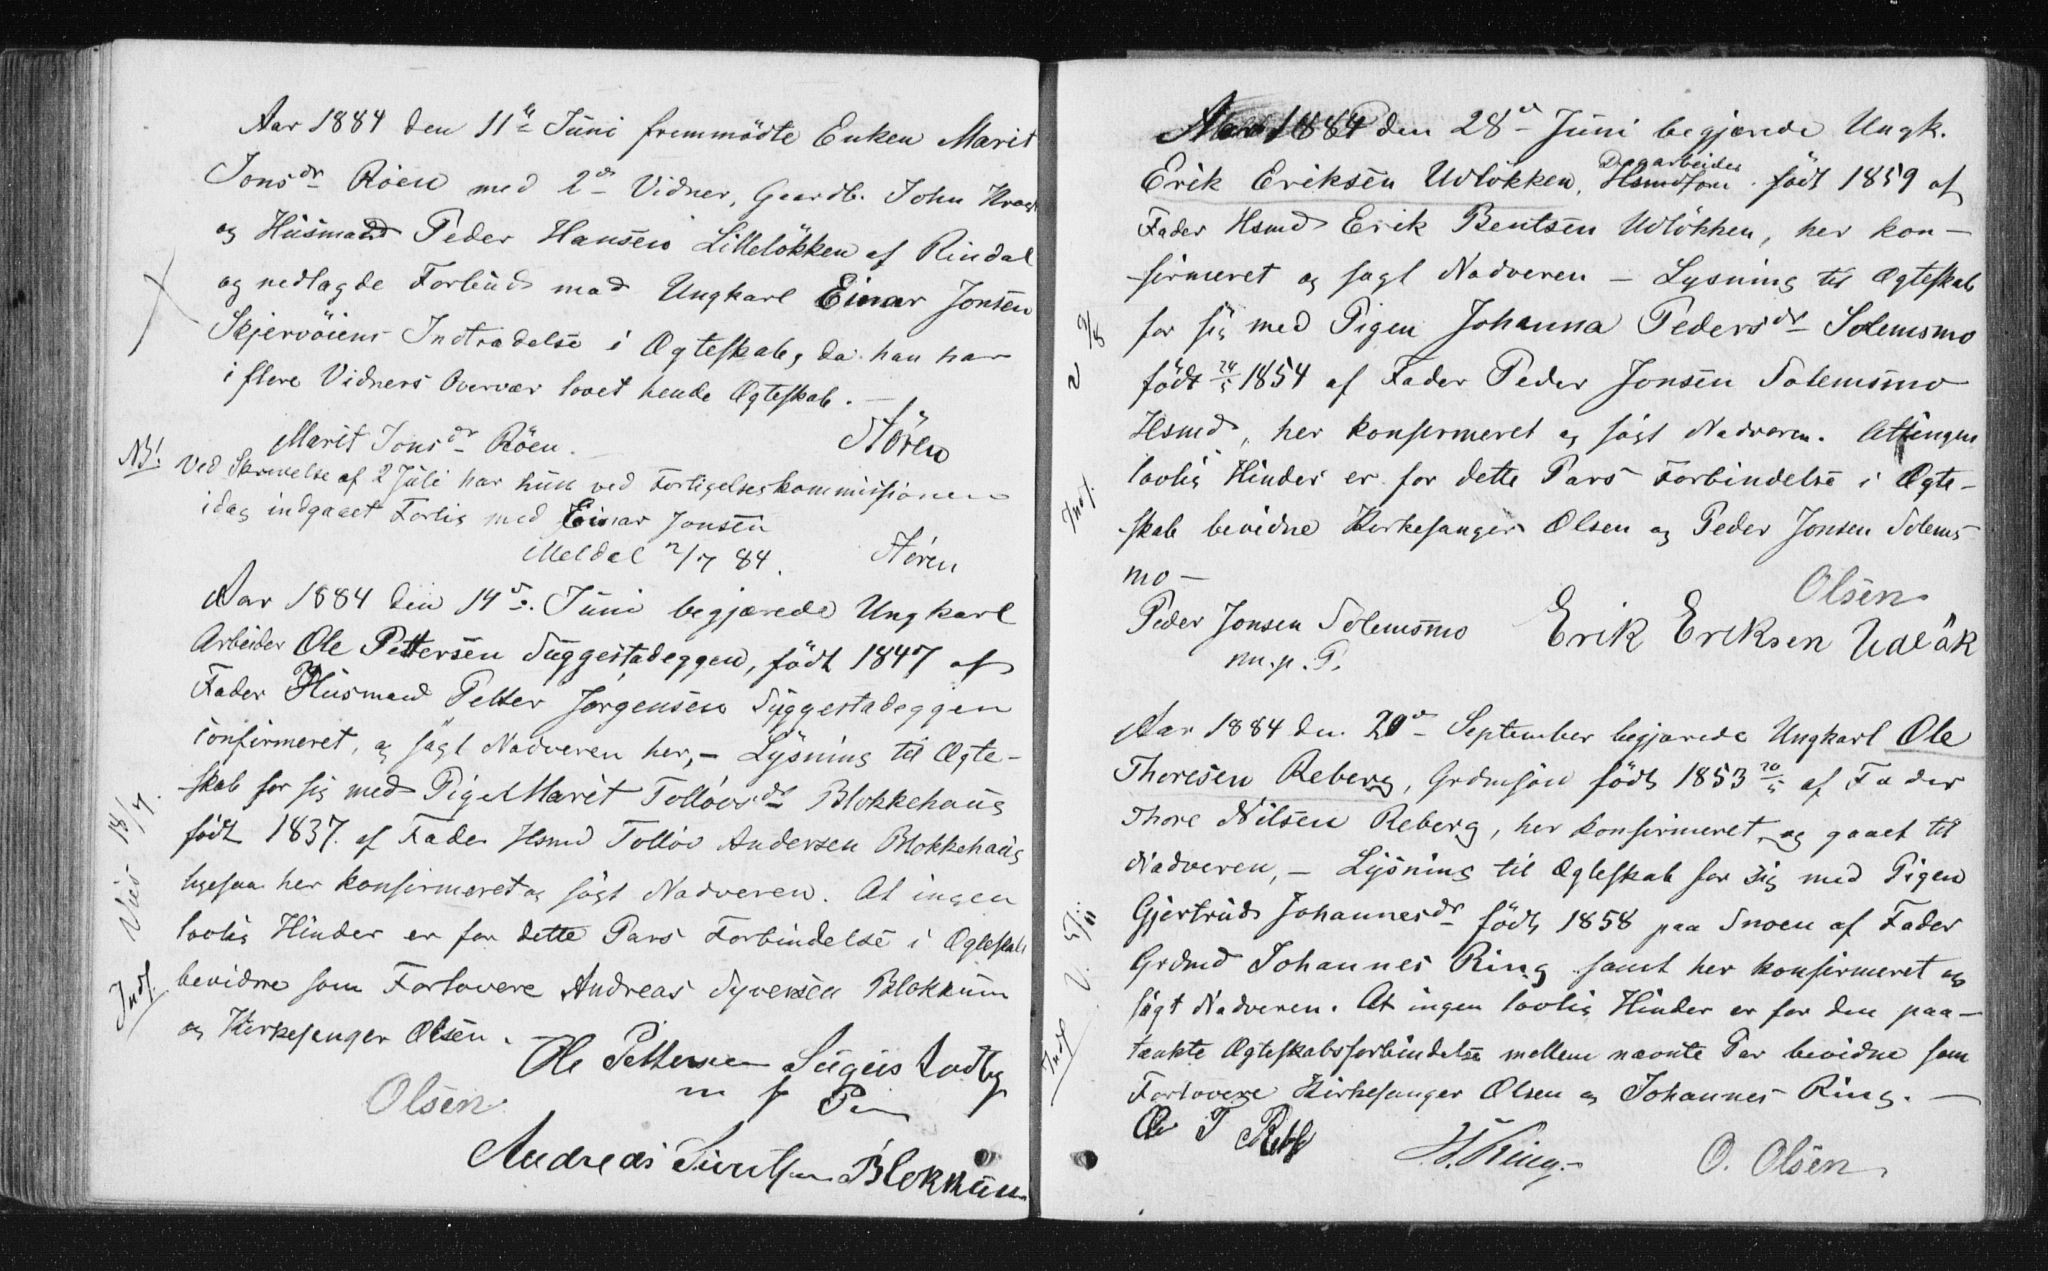 Aar 1884 den 11te Juni fremmödte Enken Marit
Jonsdr Röen med 2de Vidner, Gaardb. John
og Husmand Peder Hansen Lillelökken af Rindal
og nedlagde Forbud mod Ungkarl Einar Jonsen
Skjervöiens Indtrædelse i Ægteskab, da han har
i flere Vidners Overvær lovet hende Ægteskab. —
Marit Jonsdr Röen.
Stören
NB! Ved Skrivelse af 2 Juli har hun ved Forligelseskommissionen
idag indgaaet Forlig med Einar Jonsen
Meldal 2/7 84.
Stören
Aar 1884 den 14de Juni begjærede Ungkarl
Arbeider Ole Pettersen Suggestadeggen, födt 1847 af
Fader Husmand Petter Jörgensen Suggestadeggen
confirmeret, og sögt Nadveren her, — Lysning til Ægte-
skab for sig med Pige Marit Tollövsdr Blokkehaug
födt 1837. af Fader Hsmd Tollöv Andersen Blokkehaug
ligesaa her konfirmeret og sögt Nadveren. At ingen
lovlig Hinder er for dette Pars Forbindelse i Ægteskab
bevidne som Forlovere Andreas Syversen Blokkum
og Kirkesanger Olsen.
Indf. Viet 18/7.
Ole Pettersen
m f P
Olsen
Andreas Blokkum
Aar 1884 den 28de Juni begjærede Ungk.
Dagarbeider
Erik Eriksen Udlökken, Hsmdsön. födt 1859 af
Fader Hsmd Erik Bentsen Udlökken, her kon-
firmeret og sögt Nadveren — Lysning til Ægteskab
for sig med Pigen Johanna Pedersdr Solemsmo
födt 24/5 1854 af Fader Peder Jonsen Solemsmo
Hsmd, her konfirmeret og sögt Nadveren. At ingen
lovlig Hinder er for dette Pars Forbindelse i Ægte-
skab bevidne Kirkesanger Olsen og Peder Jonsen Solems-
mo —
Indf. v 9/8
Olsen
Peder Jonsen Solemsmo
m. p. P.
Erik Eriksen Udlök
Aar 1884 den 20de September begjærede Ungkarl Ole
Thoresen Reberg, Grdmsön födt 1853 20/5 af Fader
Thore Nilsen Reberg, her konfirmeret og gaaet til
Nadveren, — Lysning til Ægteskab for sig med Pigen
Gjertrud Johannesdr födt 1858 paa Snoen af Fader
Grdmd Johannes Ring samt her konfirmeret og
sögt Nadveren. At ingen lovlig Hinder er for den paa-
tænkte Ægteskabsforbindelse mellem nævnte Par bevidne som
Forlovere Kirkesanger Olsen og Johannes Ring. —
Indf. V. 5/11.
Ole T
J. Ring.
O. Olsen